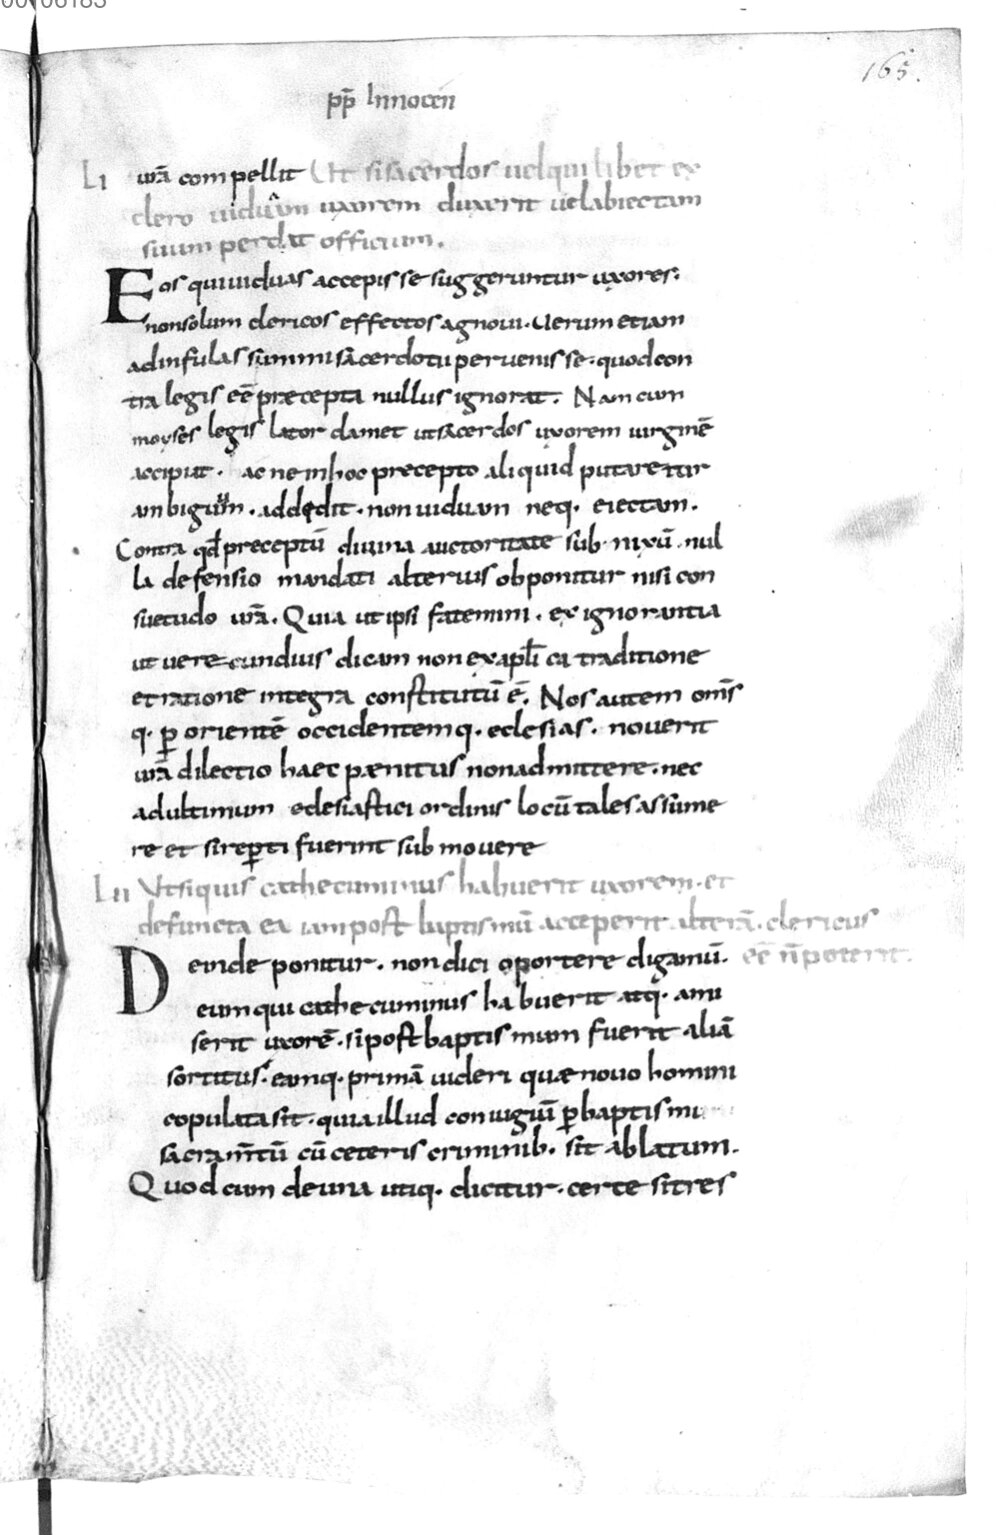 165.
pp̄ Innocen̄
LI ur̄a compellit Ut si sacerdos uel qui libet ex
clero uiduam uxorem duxerit uel abiectam
suum perdat officium.
Eos qui uiduas accepisse suggeruntur uxores.
non solum clericos effectos agnoui. Uerum etiam
ad infulas summi sacerdotii peruenisse. quod con
tra legis eē præcepta nullus ignorat. Nam cum
moyses legis lator clamet ut sacerdos uxorem uirginē
accipiat. ac ne in hoc precepto aliquid putaretur
ambiguum. addedit. non uiduam neq. eiectam.
Contra qd̄ preceptū diuina auctoritate sub nixū. nul
la defensio mandati alterius obponitur nisi con
suetudo ur̄a. Quia ut ipsi fatemini. ex ignorantia
ut uerecundius dicam non ex apl̄ica traditione
et ratione integra constitutū ē. Nos autem omīs
q. ꝑ orientē occidentemq. eclesias. nouerit
ur̄a dilectio haec pænitus non admittere. nec
ad ultimum eclesiastici ordinis locū tales assume
re et si reꝑti fuerint submouere
LII Ut si quis cathecuminus habuerit uxorem. et
defuncta ea iam post baptismū acceperit alterā. clericus
eē n̄ poterit.
Deinde ponitur. non dici oportere digamū.
eum qui cathecuminus habuerit atq. ami
serit uxorē. si post baptismum fuerit aliā
sortitus. eamq. primā uideri quæ nouo homini
copulata sit. quia illud coniugiū ꝑ baptismi
sacram̄tū cū ceteris criminib. sit ablatum.
Quod cum de una utiq. dicitur. certe si tres